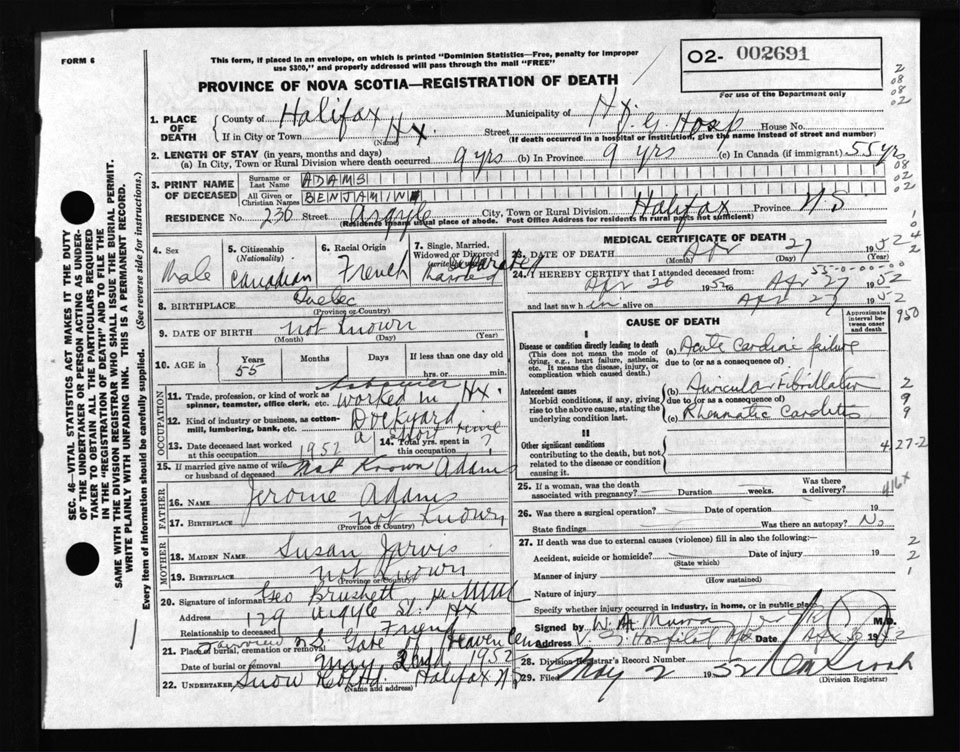 FORM 6
This form, if placed in an envelope, on which is printed "Dominion Statistics—Free, penalty for improper
use $300," and properly addressed will pass through the mail "FREE"
PROVINCE OF NOVA SCOTIA—REGISTRATION OF DEATH
O2- 002691
For use of the Department only
SEC. 46—VITAL STATISTICS ACT MAKES IT THE DUTY
OF THE UNDERTAKER OR PERSON ACTING AS UNDER-
TAKER TO OBTAIN ALL THE PARTICULARS REQUIRED
IN THE "REGISTRATION OF DEATH" AND TO FILE THE
SAME WITH THE DIVISION REGISTRAR WHO SHALL ISSUE THE BURIAL PERMIT.
WRITE PLAINLY WITH UNFADING INK. THIS IS A PERMANENT RECORD.
Every item of information should be carefully supplied. (See reverse side for instructions.)
1. PLACE OF DEATH County of Halifax Municipality of Hx. G. Hosp
If in City or Town Hx. (Name) Street House No.
(If death occurred in a hospital or institution, give the name instead of street and number)
2. LENGTH OF STAY (in years, months and days)
(a) In City, Town or Rural Division where death occurred 9 yrs (b) In Province 9 yrs (c) In Canada (if immigrant) 55 yrs
3. PRINT NAME OF DECEASED Surname or Last Name ADAMS
All Given or Christian Names BENJAMIN
RESIDENCE No. 230 Street Argyle City, Town or Rural Division Halifax Province N S
(Residence means usual place of abode. Post Office Address for residents in rural parts not sufficient)
4. Sex Male
5. Citizenship (Nationality) Canadian
6. Racial Origin French
7. Single, Married, Widowed or Divorced (write the word) Married Separated
8. BIRTHPLACE Quebec
(Province or Country)
9. DATE OF BIRTH not Known
(Month) (Day) (Year)
10. AGE in Years 55 Months Days If less than one day old hrs. or min.
OCCUPATION
11. Trade, profession, or kind of work as spinner, teamster, office clerk, etc. Labourer worked in Hx.
12. Kind of industry or business, as cotton-mill, lumbering, bank, etc. Dockyard
a short time
13. Date deceased last worked at this occupation 1952
14. Total yrs. spent in this occupation ?
15. If married give name of wife or husband of deceased Not Known Adams
FATHER
16. NAME Jerome Adams
17. BIRTHPLACE not Known
(Province or Country)
MOTHER
18. MAIDEN NAME Susan Jarvis
19. BIRTHPLACE not Known
(Province or Country)
20. Signature of informant Geo Brushett
Address 129 Argyle St. Hx
Relationship to deceased Friend
21. Place of burial, cremation or removal Fairview N.S. Gate of Heaven Cem
Date of burial or removal May 2nd 1952
22. UNDERTAKER Snow & Co Ltd. Halifax N.S.
(Name and address)
MEDICAL CERTIFICATE OF DEATH
23. DATE OF DEATH Apr 27 1952
(Month) (Day)
24. I HEREBY CERTIFY that I attended deceased from:
55-0-00-00
Apr 26 1952 to Apr 27 1952
and last saw him alive on Apr 27 1952
CAUSE OF DEATH
Approximate interval between onset and death
I
Disease or condition directly leading to death
(This does not mean the mode of dying, e.g., heart failure, asthenia, etc. It means the disease, injury, or complication which caused death.)
(a) Acute Cardiac failure
due to (or as a consequence of)
Antecedent causes
Morbid conditions, if any, giving rise to the above cause, stating the underlying condition last.
(b) Auricular Fibrillation
due to (or as a consequence of)
(c) Rheumatic Carditis
II
Other significant conditions
contributing to the death, but not related to the disease or condition causing it.
4-27-2
416x
25. If a woman, was the death associated with pregnancy? Duration weeks. Was there a delivery?
26. Was there a surgical operation? Date of operation 19
State findings Was there an autopsy? No
27. If death was due to external causes (violence) fill in also the following:—
Accident, suicide or homicide? (State which) Date of injury 19
Manner of injury
(How sustained)
Nature of injury
Specify whether injury occurred in industry, in home, or in public place
Signed by W. A. M.D.
Address V. G. Hospital Hx Date 1952
28. Division Registrar's Record Number
29. Filed May 2 1952
(Division Registrar)